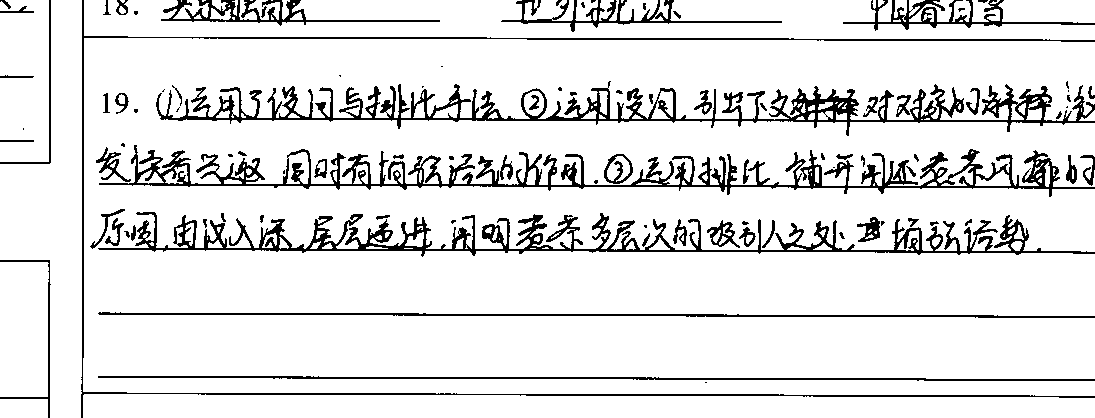 18. 其乐融融 世外桃源
19. ①运用了设问与排比手法.②运用设问,引出下文对对象的解释,激
发读者兴趣,同时有增强语气的作用.③运用排比,铺开阐述煮茶风靡的
原因,由浅入深,层层递进,阐明煮茶多层次的吸引人之处,增强语势.